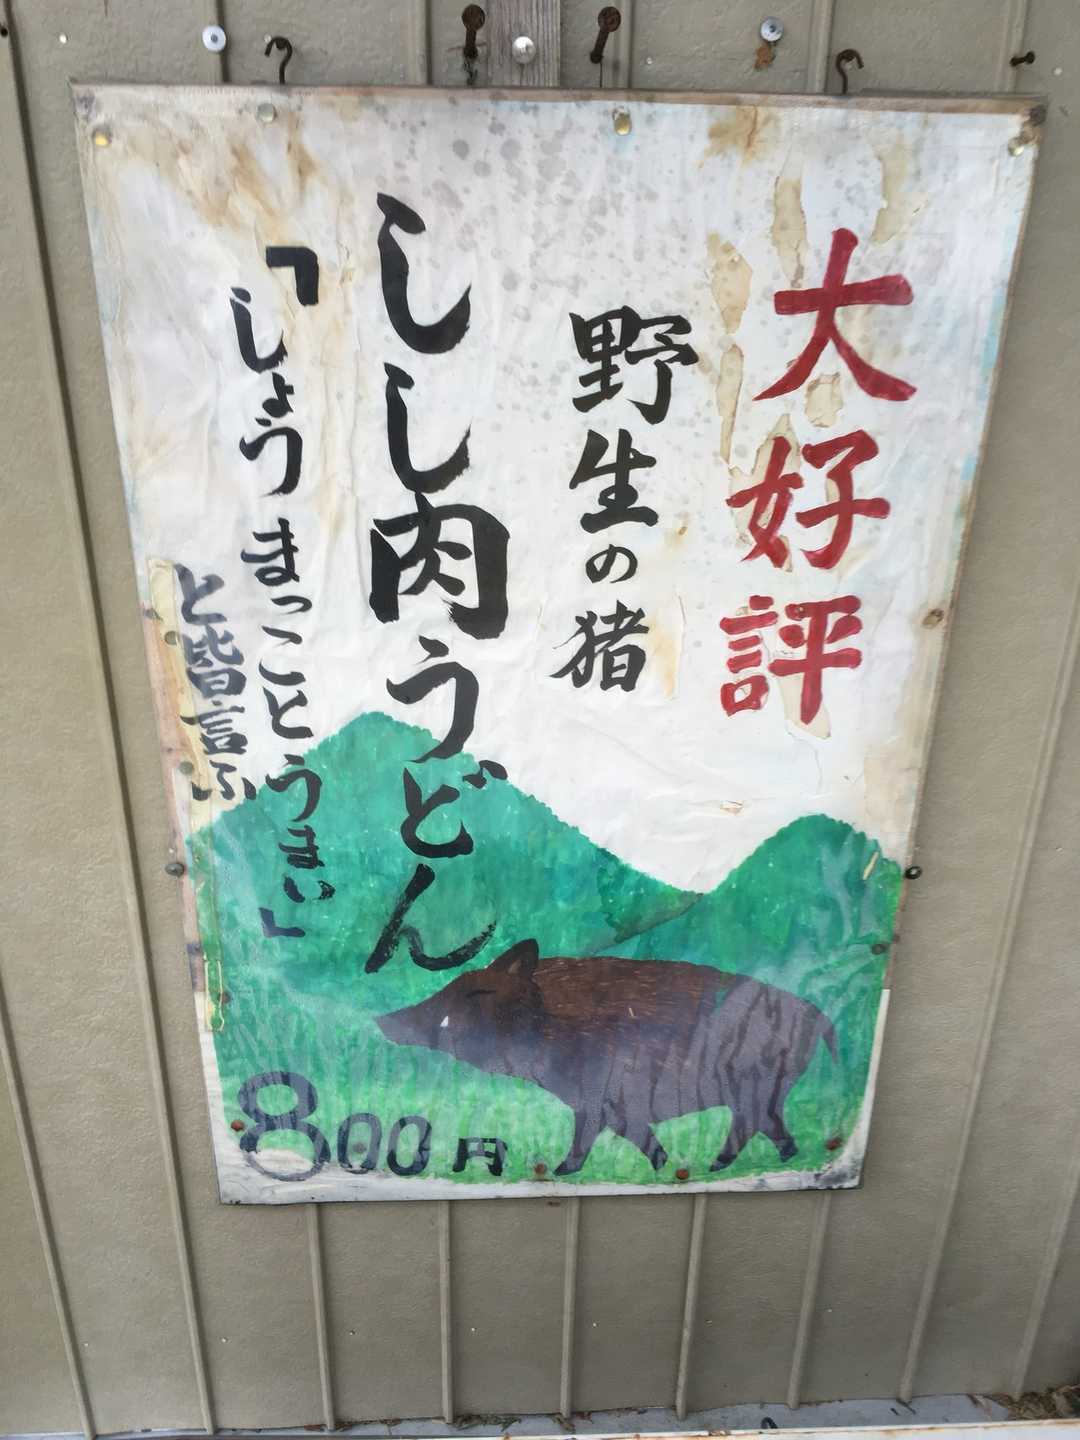 大好評
野生の猪
しし肉うどん
「しょうまっことうまい」
と皆言ふ
800円